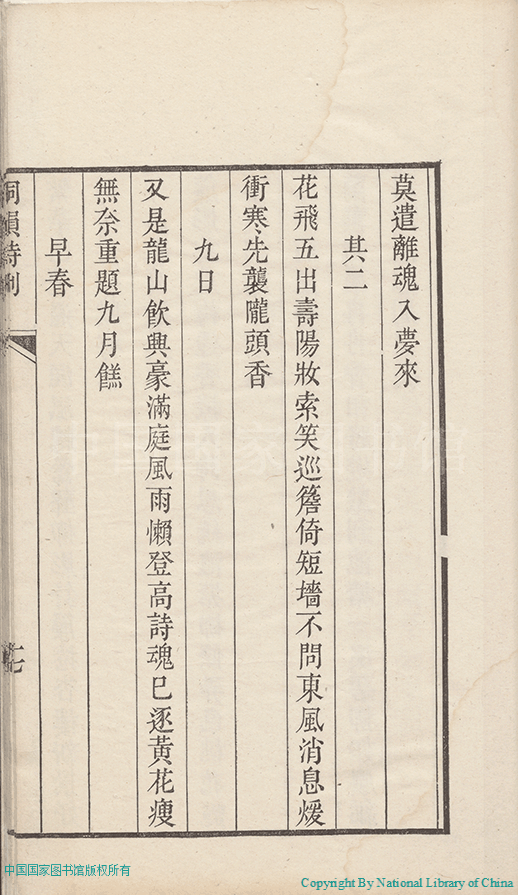 莫遣離魂入夢來
其二
花飛五出壽陽妝索笑巡簷倚短墻不問東風消息煖
衝寒先襲隴頭香
九日
又是龍山飲興豪滿庭風雨懶登高詩魂已逐黃花瘦
無奈重題九月餻
早春
中国国家图书馆
中国国家图书馆版权所有
Copyright By National Library of China